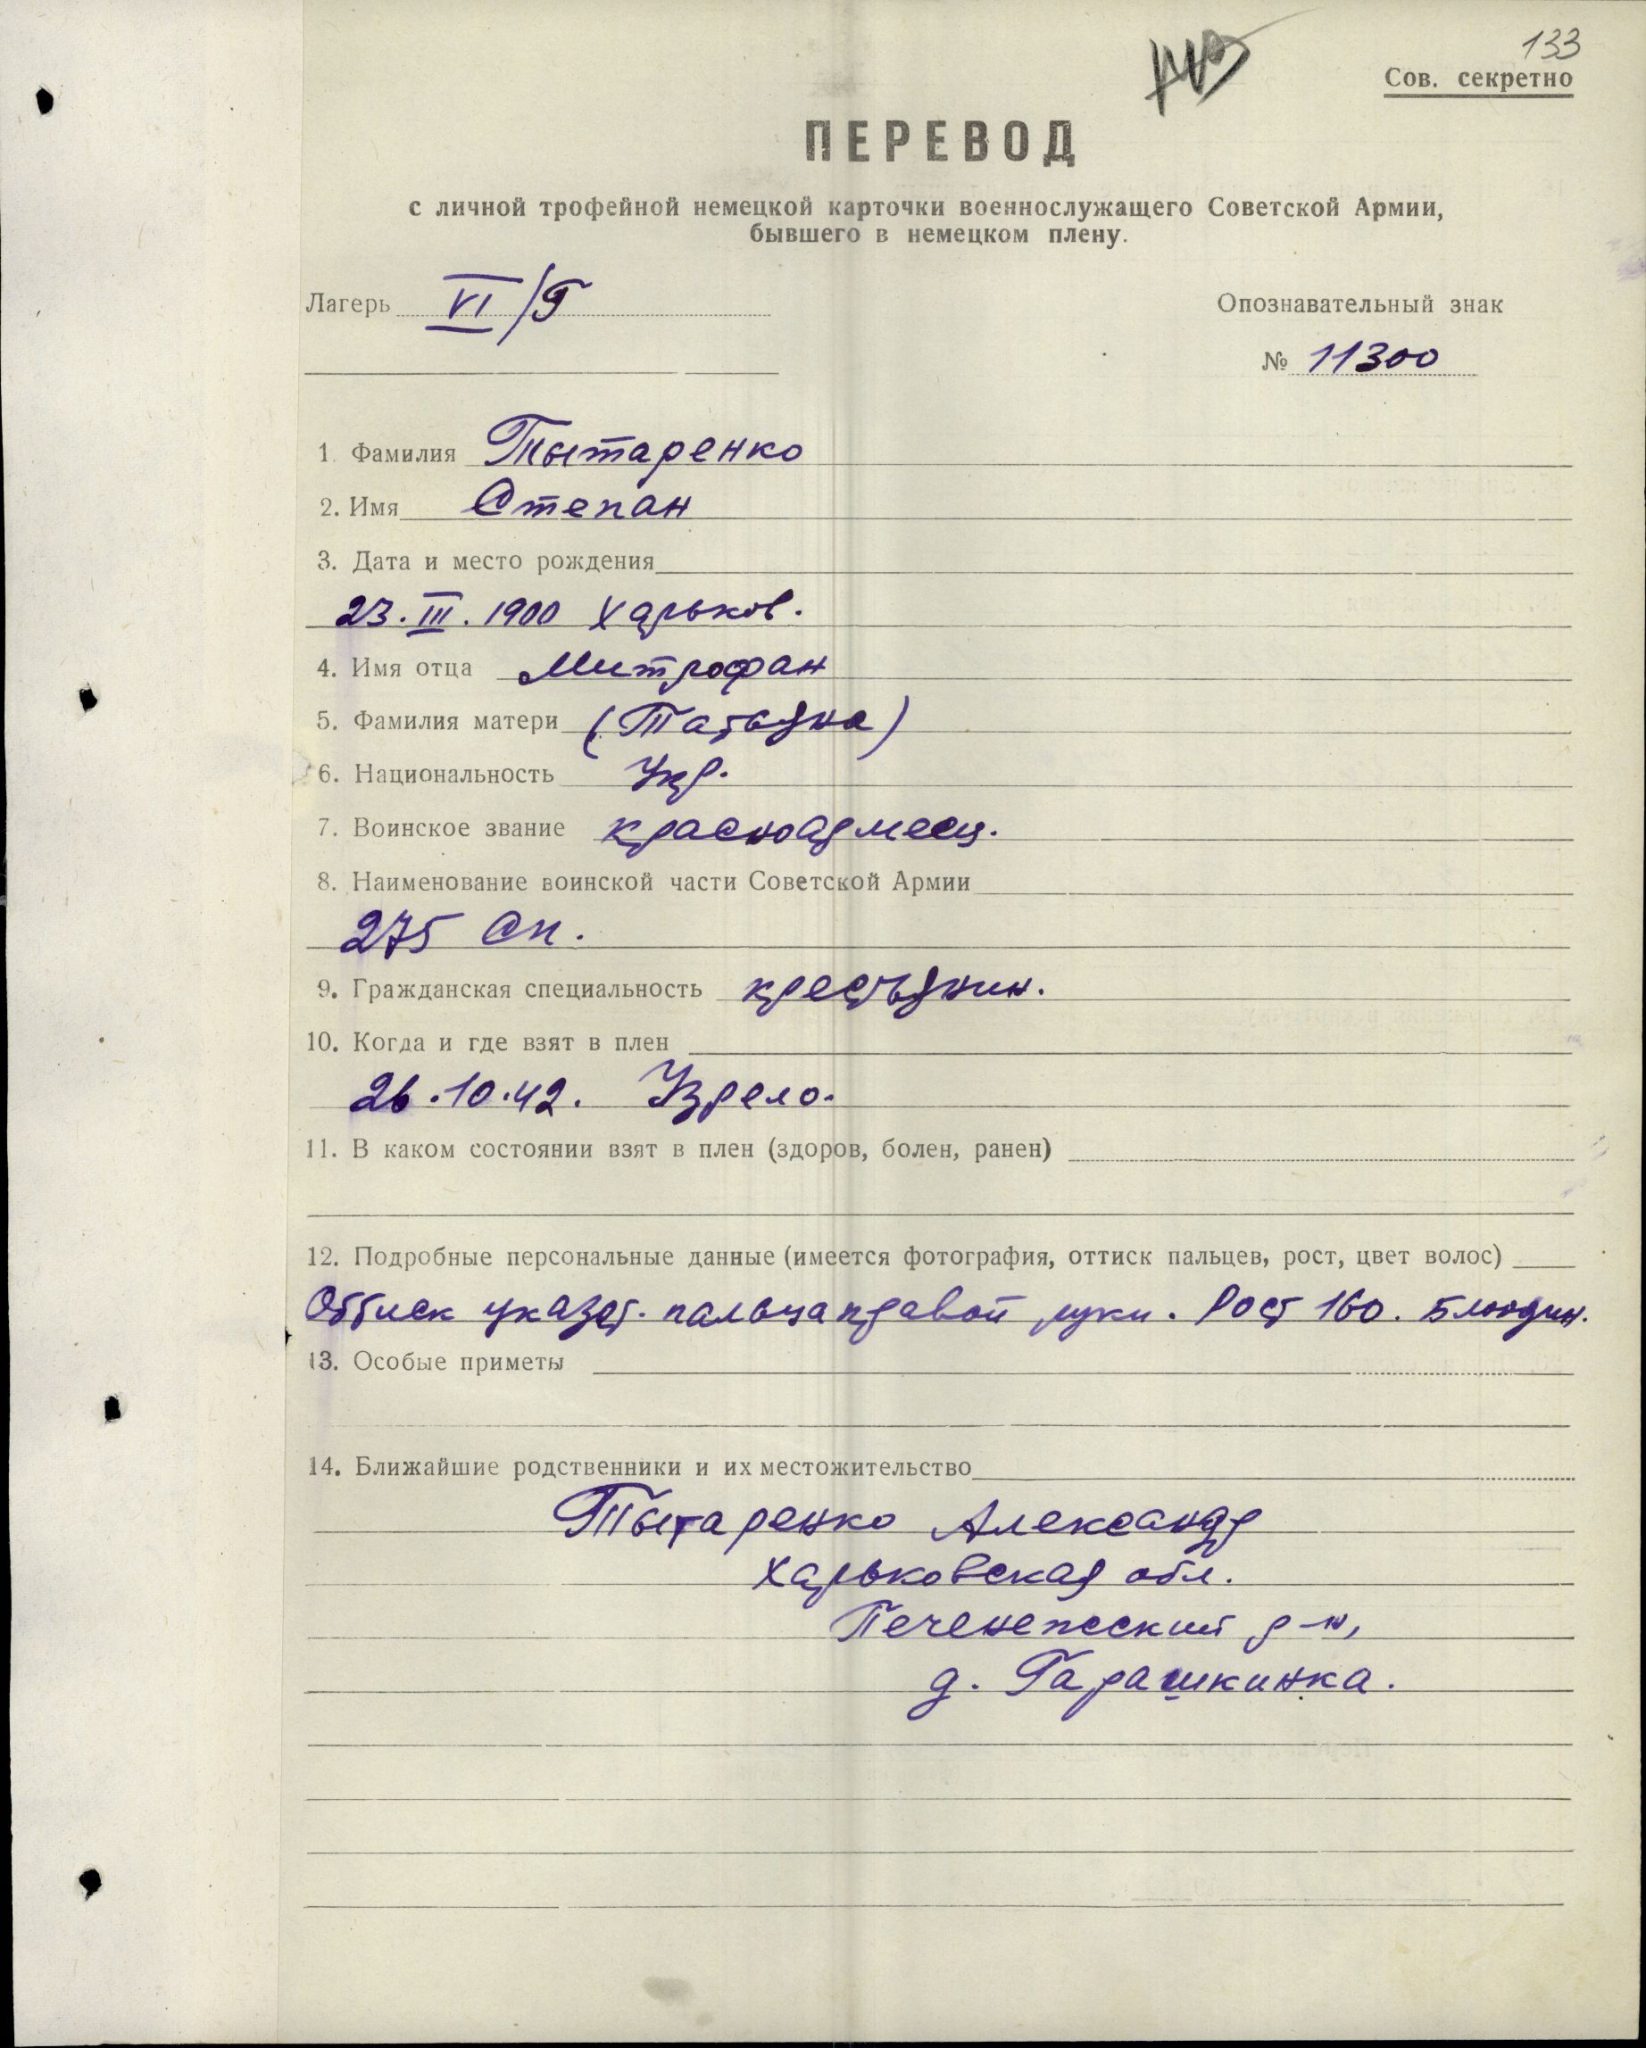 133
Сов. секретно
ПЕРЕВОД
с личной трофейной немецкой карточки военнослужащего Советской Армии,
бывшего в немецком плену.
Лагерь VI/Г
Опознавательный знак
№ 11300
1. Фамилия Тытаренко
2. Имя Степан
3. Дата и место рождения
23.III.1900 Харьков.
4. Имя отца Митрофан
5. Фамилия матери (Татьяна)
6. Национальность Укр.
7. Воинское звание красноармеец.
8. Наименование воинской части Советской Армии
275 сп.
9. Гражданская специальность крестьянин.
10. Когда и где взят в плен
26.10.42. Узрело.
11. В каком состоянии взят в плен (здоров, болен, ранен)
12. Подробные персональные данные (имеется фотография, оттиск пальцев, рост, цвет волос)
Оттиск указат. пальца правой руки. Рост 160. Блондин.
13. Особые приметы
14. Ближайшие родственники и их местожительство
Тытаренко Александр
Харьковская обл.
Печенежский р-н,
д. Гарашкинка.